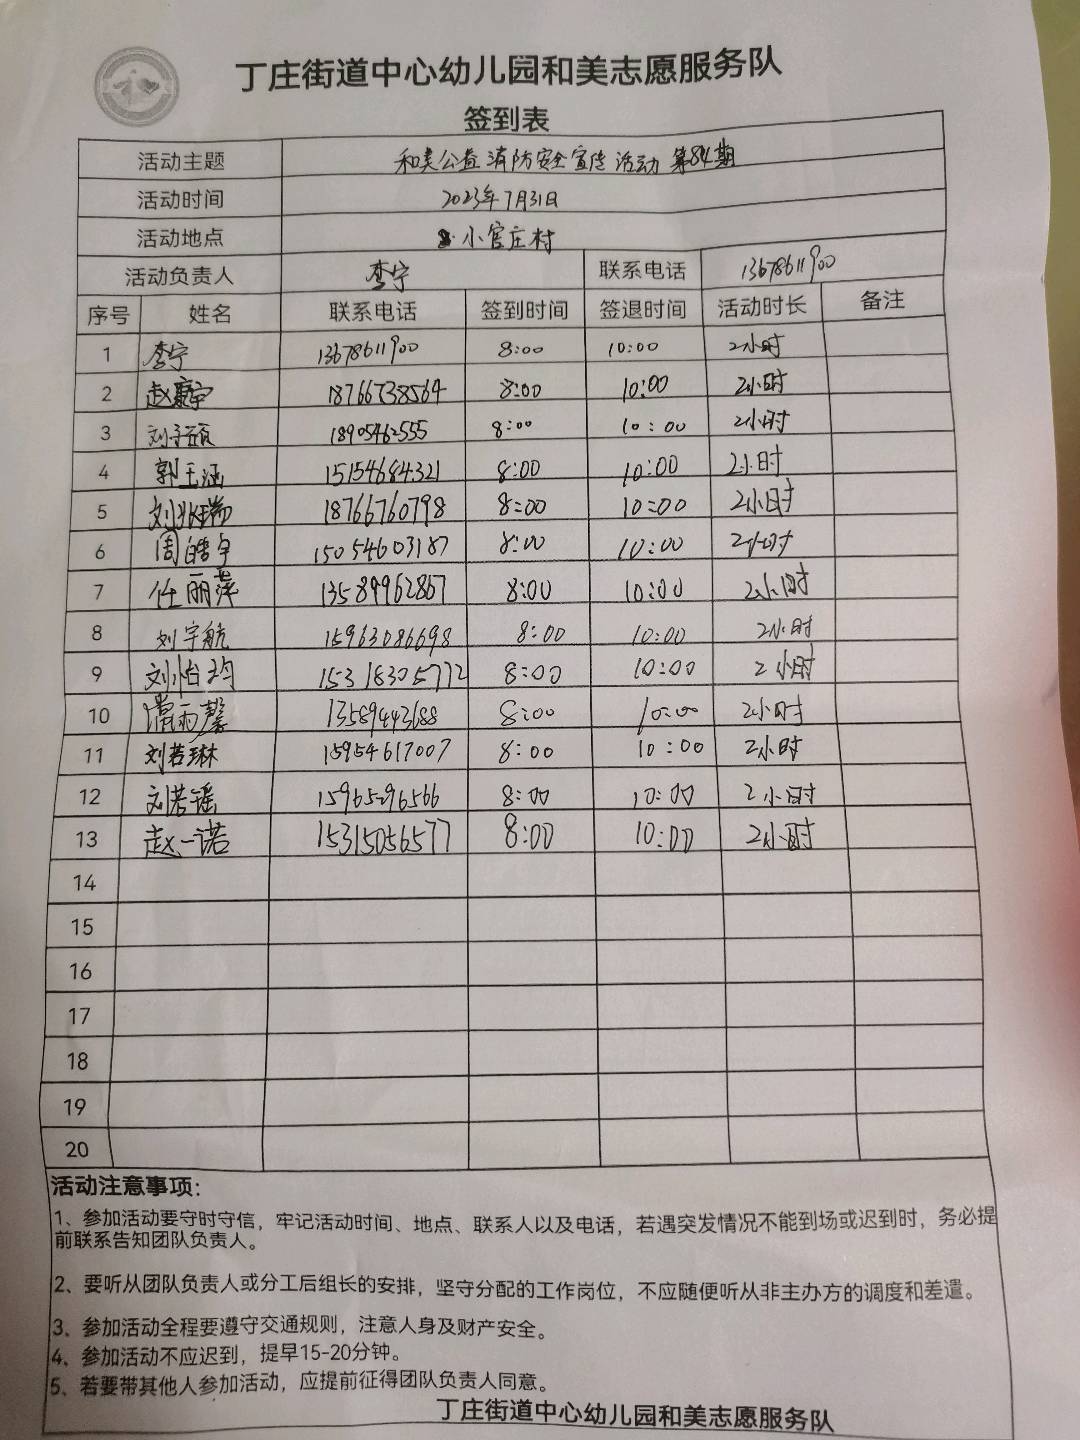 丁庄街道中心幼儿园和美志愿服务队
签到表
活动主题 和美公益 消防安全宣传活动 第84期
活动时间 2023年7月31日
活动地点 小官庄村
活动负责人 李宁 联系电话 13678611900
序号 姓名 联系电话 签到时间 签退时间 活动时长 备注
1 李宁 13678611900 8:00 10:00 2小时
2 赵宁 18766738564 8:00 10:00 2小时
3 刘子硕 18905462555 8:00 10:00 2小时
4 郭玉涵 15154684321 8:00 10:00 2小时
5 刘瑞 18766760798 8:00 10:00 2小时
6 周皓宇 15054603187 8:00 10:00 2小时
7 任丽萍 13589962867 8:00 10:00 2小时
8 刘宇航 15963086698 8:00 10:00 2小时
9 刘怡均 15318305772 8:00 10:00 2小时
10 雨馨 13589443688 8:00 10:00 2小时
11 刘若琳 15954617007 8:00 10:00 2小时
12 刘若瑶 15965296566 8:00 10:00 2小时
13 赵一诺 15315056577 8:00 10:00 2小时
14
15
16
17
18
19
20
活动注意事项：
1、参加活动要守时守信，牢记活动时间、地点、联系人以及电话，若遇突发情况不能到场或迟到时，务必提
前联系告知团队负责人。
2、要听从团队负责人或分工后组长的安排，坚守分配的工作岗位，不应随便听从非主办方的调度和差遣。
3、参加活动全程要遵守交通规则，注意人身及财产安全。
4、参加活动不应迟到，提早15-20分钟。
5、若要带其他人参加活动，应提前征得团队负责人同意。
丁庄街道中心幼儿园和美志愿服务队